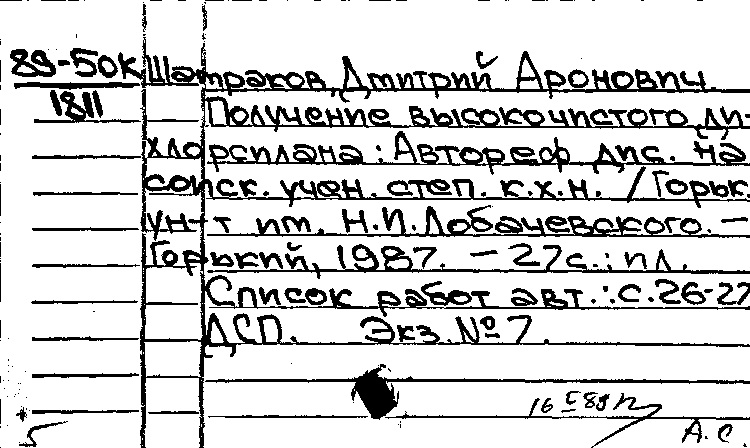 89-50К
1811
Шатраков, Дмитрий Аронович.
Получение высокочистого ди-
хлорсилана: Автореф дис. на
соиск. учен. степ. к.х.н. / Горьк.
ун-т им. Н.И.Лобачевского. –
Горький, 1987. – 27с.: ил.
Список работ авт.: с.26-27
ДСП. Экз. № 7.
16
А.С.
5